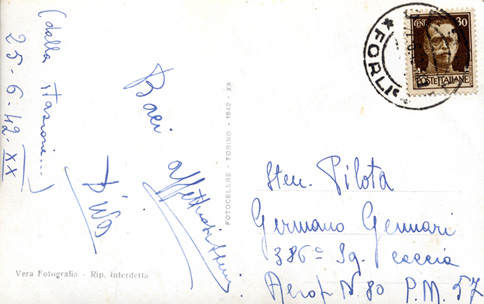 (dalla stazione...)
25-6-42-XX
Baci affettuosissimi
Diva
Vera Fotografia - Rip. interdetta
FOTOCELERE - TORINO - 1942 - XX
CENT 30
POSTE ITALIANE
FORLI
Sten. Pilota
Germano Gennari
386ª Sq. caccia
Aerop. N. 80 P.M. 57